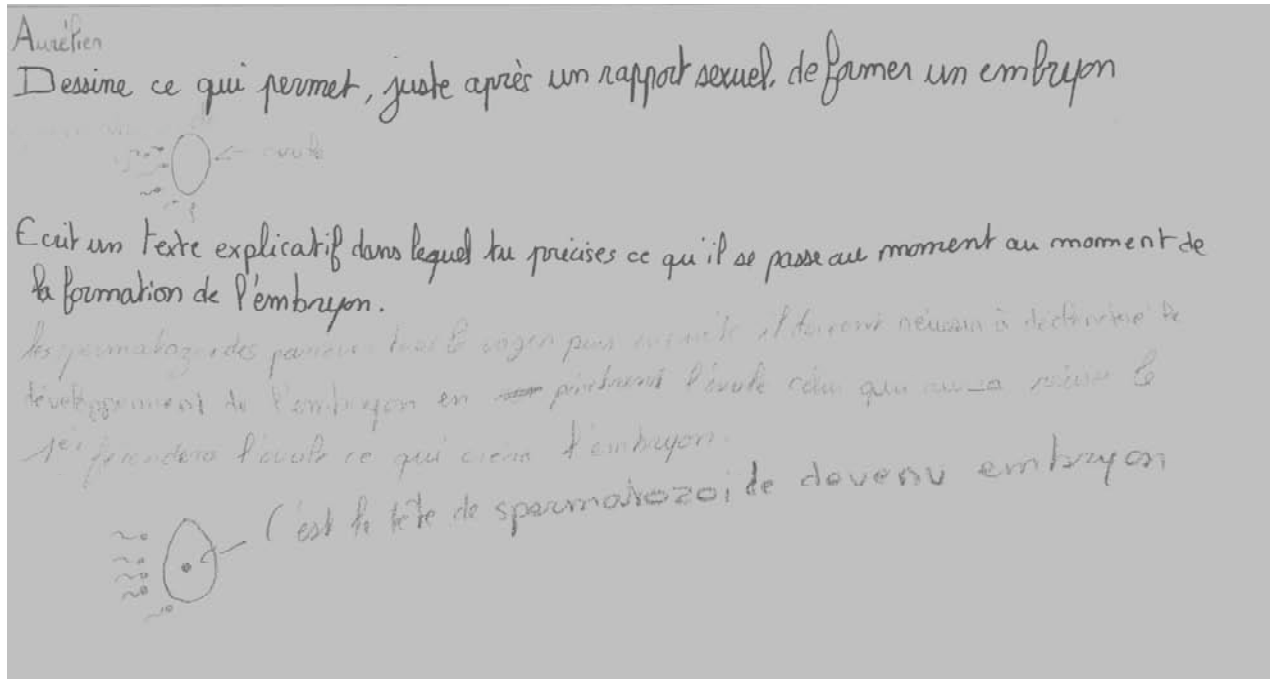 Aurélien
Dessine ce qui permet, juste après un rapport sexuel, de former un embryon
ovule
Ecrit un texte explicatif dans lequel tu précises ce qu'il se passe au moment au moment de
la formation de l'embryon.
les spermatozoides passent tous le vagin pour ensuite il doivent réussir à
développement de l'embryon en pénétrant l'ovule celui qui aura réussi le
1er l'ovule ce qui créera l'embryon.
C'est la tête de spermatozoide devenu embryon